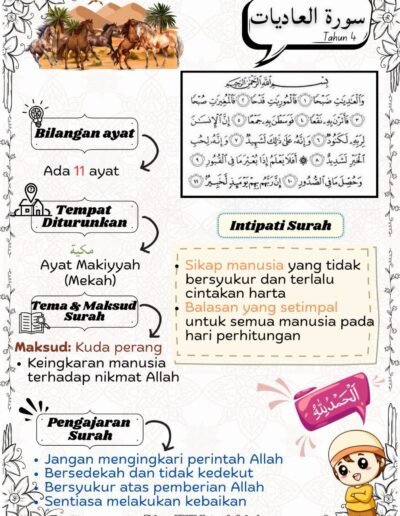 سورة العاديات
Tahun 4
بِسْمِ اللَّهِ الرَّحْمَٰنِ الرَّحِيمِ
وَالْعَادِيَاتِ ضَبْحًا ١ فَالْمُورِيَاتِ قَدْحًا ٢ فَالْمُغِيرَاتِ صُبْحًا
٣ فَأَثَرْنَ بِهِ نَقْعًا ٤ فَوَسَطْنَ بِهِ جَمْعًا ٥ إِنَّ الْإِنسَانَ
لِرَبِّهِ لَكَنُودٌ ٦ وَإِنَّهُ عَلَىٰ ذَٰلِكَ لَشَهِيدٌ ٧ وَإِنَّهُ لِحُبِّ
الْخَيْرِ لَشَدِيدٌ ٨ أَفَلَا يَعْلَمُ إِذَا بُعْثِرَ مَا فِي الْقُبُورِ ٩
وَحُصِّلَ مَا فِي الصُّدُورِ ١٠ إِنَّ رَبَّهُم بِهِمْ يَوْمَئِذٍ لَّخَبِيرٌ ١١
Bilangan ayat
Ada 11 ayat
Tempat
Diturunkan
مكية
Ayat Makiyyah
(Mekah)
Tema & Maksud
Surah
Maksud: Kuda perang
• Keingkaran manusia
terhadap nikmat Allah
Intipati Surah
• Sikap manusia yang tidak
bersyukur dan terlalu
cintakan harta
• Balasan yang setimpal
untuk semua manusia pada
hari perhitungan
الْحَمْدُ لِلَّهِ
Pengajaran
Surah
• Jangan mengingkari perintah Allah
• Bersedekah dan tidak kedekut
• Bersyukur atas pemberian Allah
• Sentiasa melakukan kebaikan